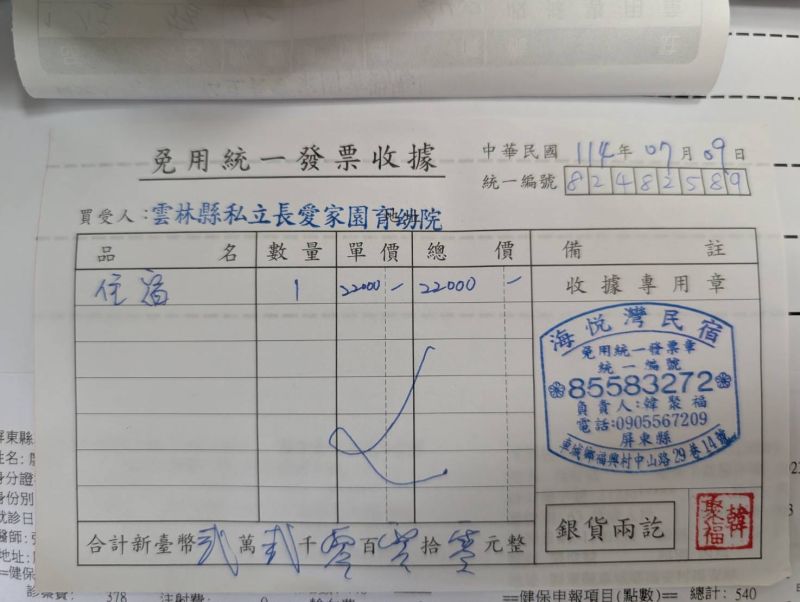 免用統一發票收據
中華民國 114年 07月 09日
統一編號 82482589
買受人：雲林縣私立長愛家園育幼院
品名 數量 單價 總價 備註
住宿 1 22000- 22000-
收據專用章
海悅灣民宿
免用統一發票章
統一編號
85583272
負責人：韓聚福
電話：0905567209
屏東縣
車城鄉福興村中山路29巷14號
銀貨兩訖
韓聚福
合計新臺幣 貳萬貳千零百零拾零元整
屏東縣
姓名：
身分證
身份別
就診日
醫師：
地址：
==健保
診察費： 378 注射費： 0
==健保申報項目(點數)== 總計： 540